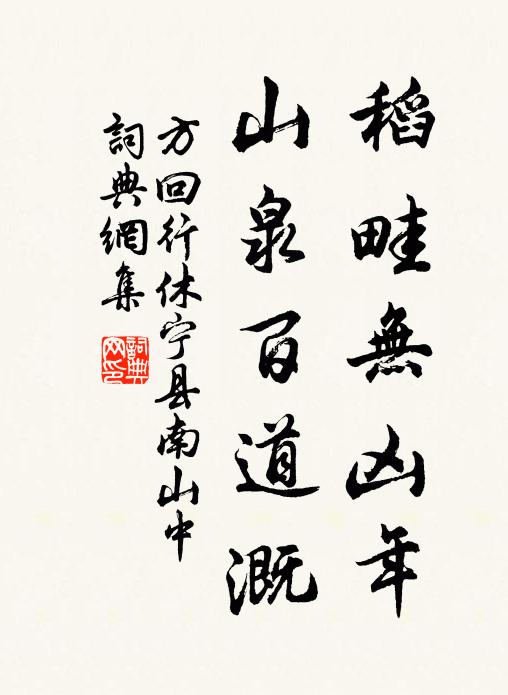 稻畦無凶年
山泉百道溉
方回行休宁县南山中
詞典網集
詞典
网印